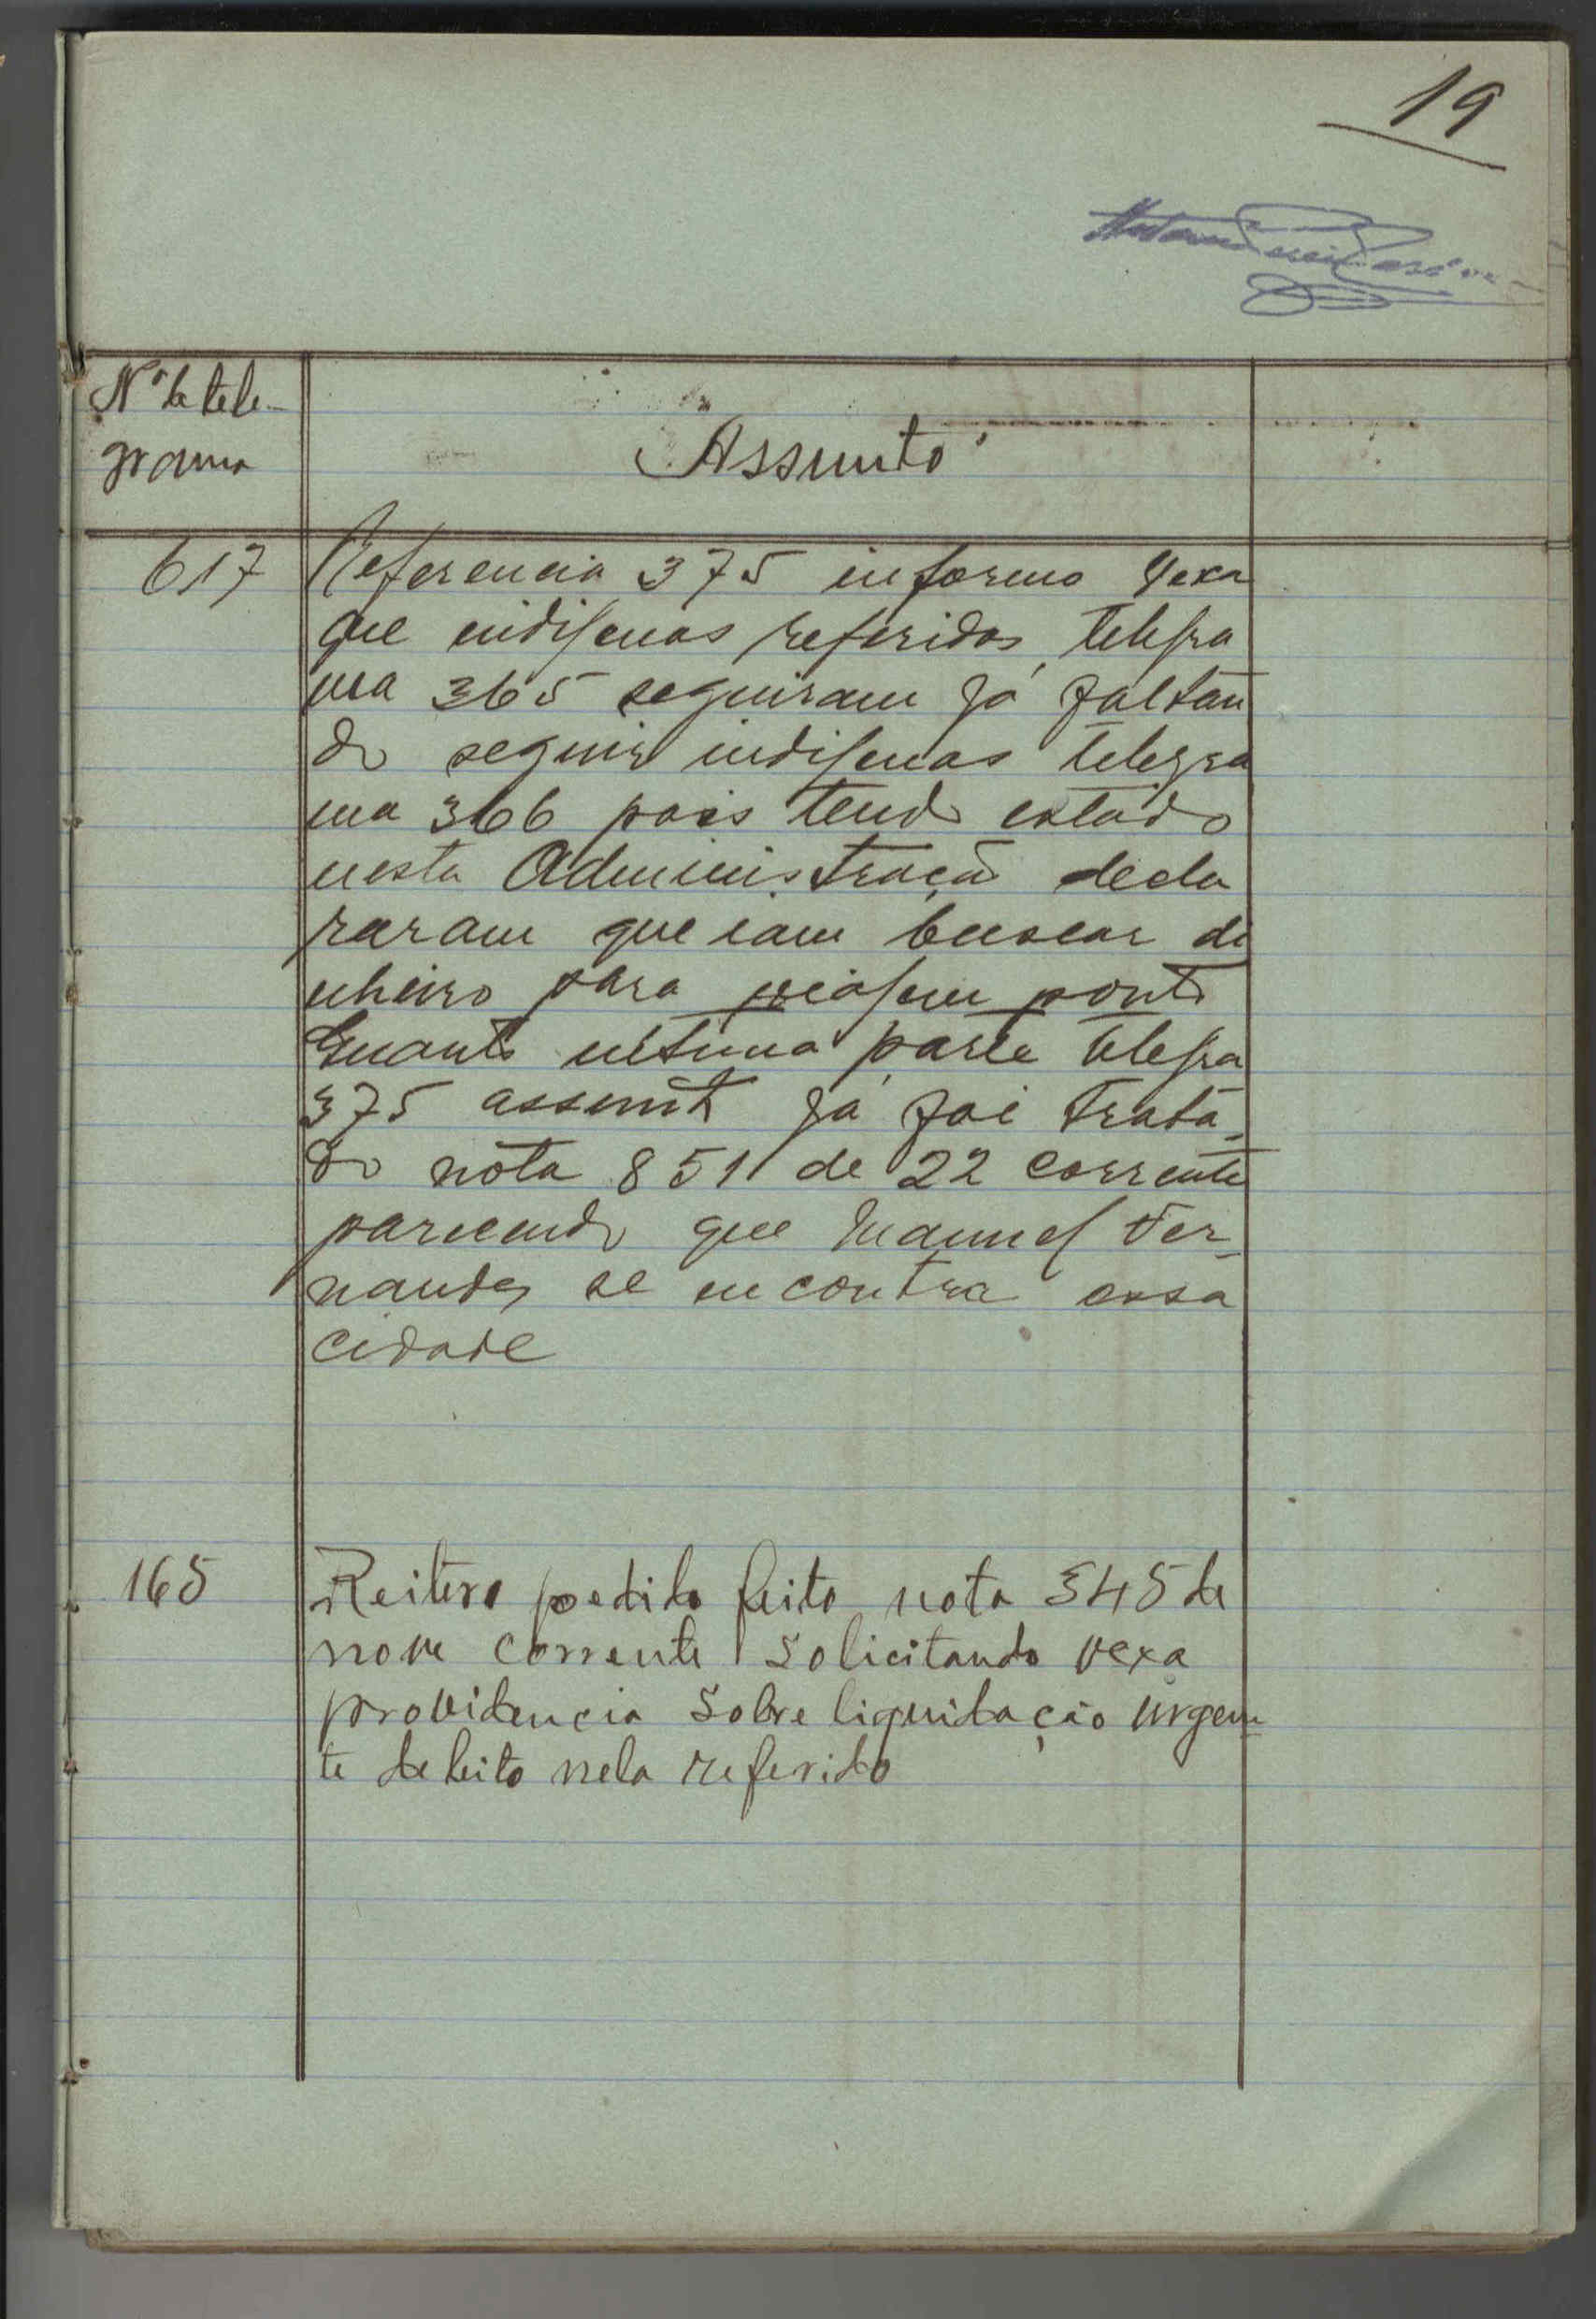 19
Nº de tele-
grama
Assunto
617
Referencia 375 informo Vexa
que indigenas referidos telegra
ma 365 seguiram já faltan
do seguir indigenas telegra
ma 366 pois tendo estado
nesta Administração decla
raram que iam buscar di
nheiro para viagem ponto
Quanto ultima parte telegra
375 assunto já foi trata-
do nota 851 de 22 corrente
parecendo que Manuel Fer-
nandes se encontra essa
cidade
165
Reitero pedido feito nota 345 de
nove corrente solicitando vexa
providencia sobre liquidação urgen-
te debito nela referido